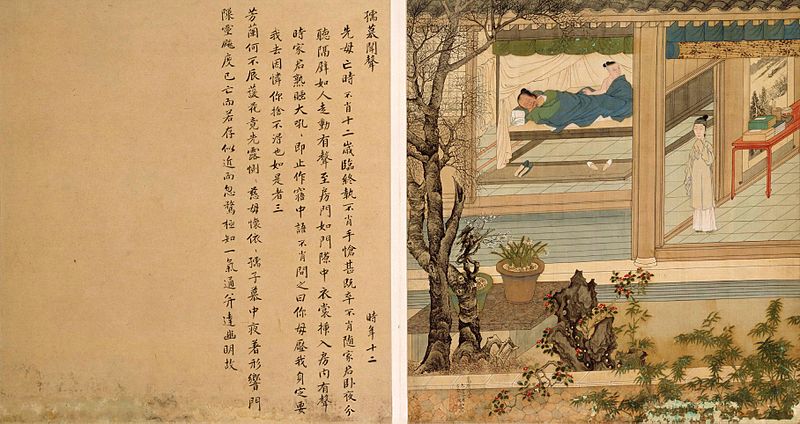 孺慕聞聲 時年十二
先母亡時不肖十二歲臨終執不肖手愴甚既卒不肖隨家君卧夜分
聽隔壁如人走動有聲至房門如門隙中衣裳揷入房内有聲
時家君熟睡大吼即止作寤中語不肖問之曰你母壓我身定要
我去因憐你捨不得也如是者三
芳蘭何不辰蘐花竟先露惻〻慈母懷依〻孺子慕中夜著形響門
隙靈飚度已亡而若存似近而忽騖極知一氣通升達幽明故